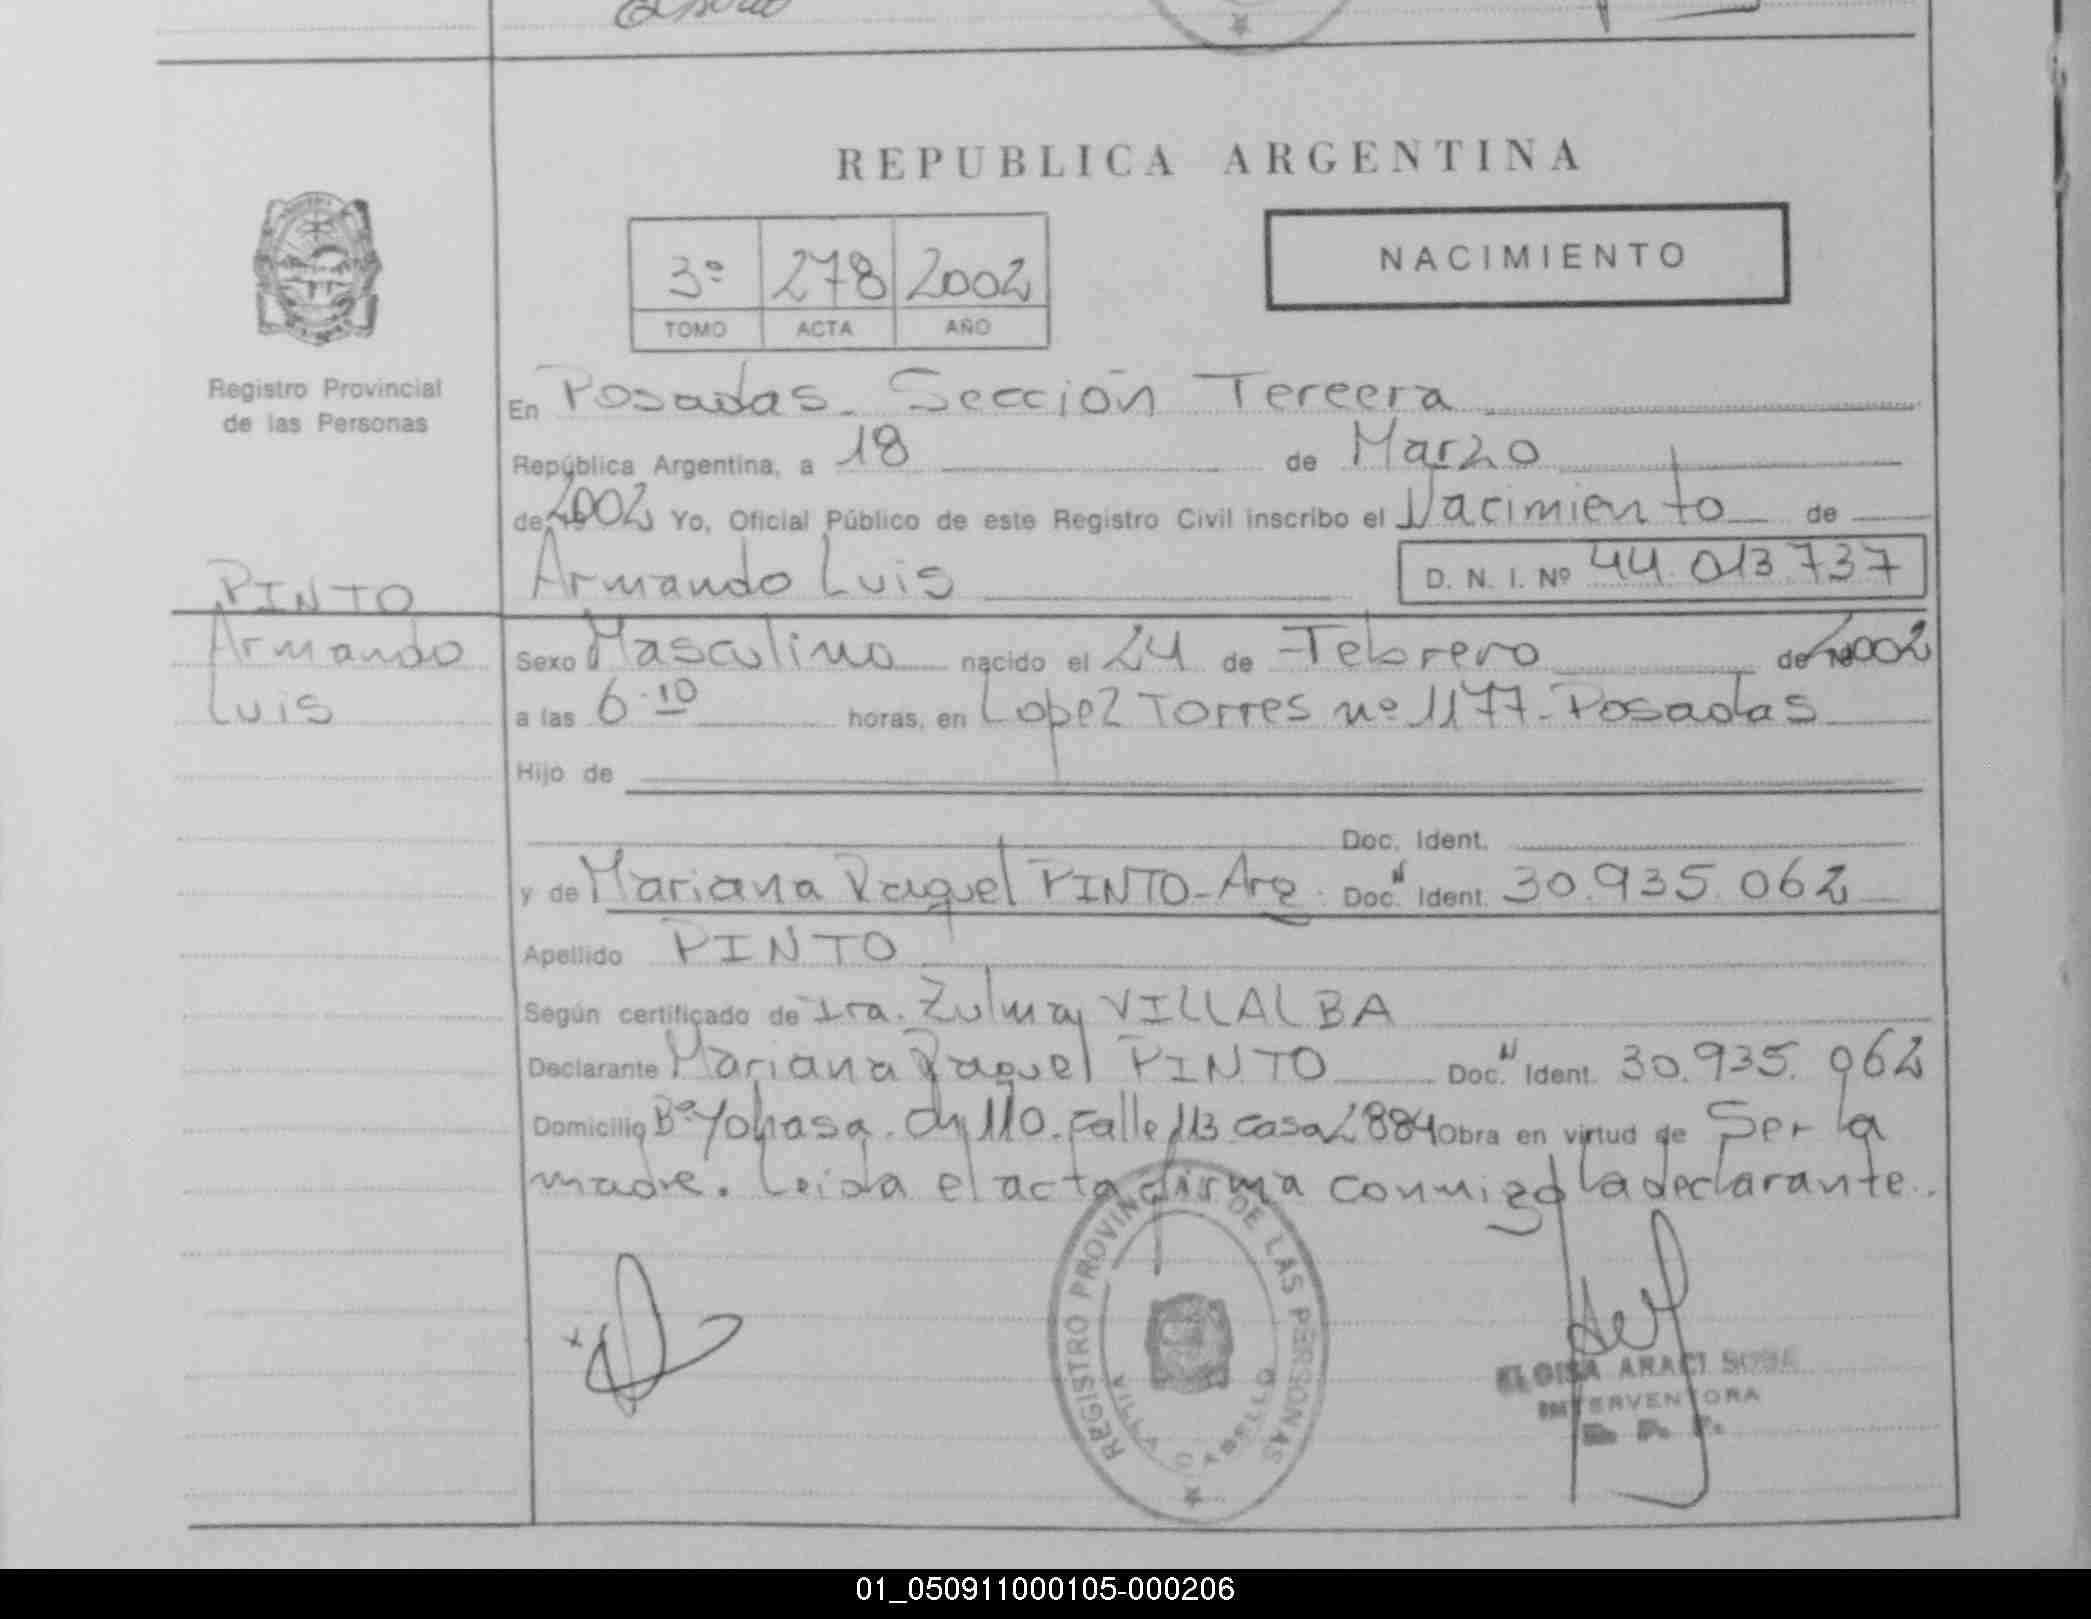 REPUBLICA ARGENTINA
3º 278 2002
TOMO ACTA AÑO
NACIMIENTO
Registro Provincial
de las Personas
En Posadas. Sección Tercera
República Argentina, a 18 de Marzo
de 2002 Yo, Oficial Público de este Registro Civil inscribo el Nacimiento de
Armando Luis D. N. I. Nº 44.013.737
PINTO
Armando
Luis
Sexo Masculino nacido el 24 de Febrero de 2002
a las 6.10 horas, en Lopez Torres nº 1177-Posadas
Hijo de
Doc. Ident.
y de Mariana Raquel PINTO-Arg. Doc. N Ident. 30.935.062
Apellido PINTO
Según certificado de Zulma VILLALBA
Declarante Mariana Raquel PINTO Doc. N Ident. 30.935.062
Domicilio Bº Yohasa. Ch 110. Calle 113 casa 2884 Obra en virtud de Ser la
madre. Leida el acta firma conmigo la declarante.
REGISTRO PROVINCIAL DE LAS PERSONAS
VILLA CABELLO
ELOISA ARACI SOSA
INTERVENTORA
R. P. P.
01_050911000105-000206